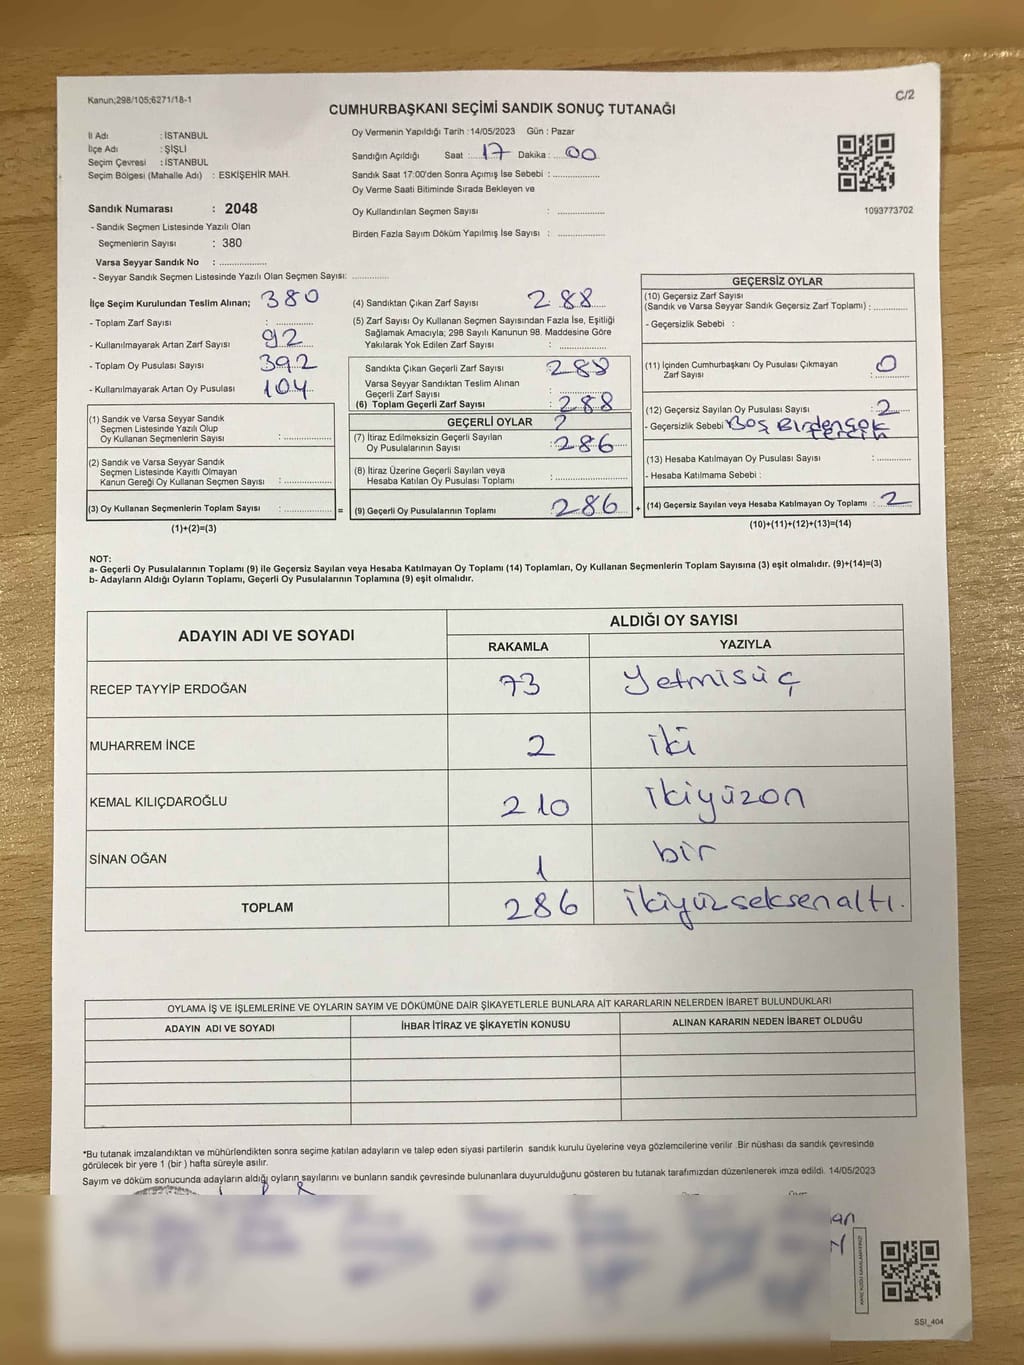 Kanun;298/105;6271/18-1
C/2
CUMHURBAŞKANI SEÇİMİ SANDIK SONUÇ TUTANAĞI
İl Adı : İSTANBUL
İlçe Adı : ŞİŞLİ
Seçim Çevresi : İSTANBUL
Seçim Bölgesi (Mahalle Adı) : ESKİŞEHİR MAH.
Sandık Numarası : 2048
- Sandık Seçmen Listesinde Yazılı Olan
Seçmenlerin Sayısı : 380
Varsa Seyyar Sandık No : ....................
- Seyyar Sandık Seçmen Listesinde Yazılı Olan Seçmen Sayısı: ..............
Oy Vermenin Yapıldığı Tarih : 14/05/2023 Gün : Pazar
Sandığın Açıldığı Saat : 17 Dakika : 00
Sandık Saat 17:00'den Sonra Açımış İse Sebebi : ..................
Oy Verme Saati Bitiminde Sırada Bekleyen ve
Oy Kullandırılan Seçmen Sayısı : ..................
Birden Fazla Sayım Döküm Yapılmış İse Sayısı : ..................
1093773702
İlçe Seçim Kurulundan Teslim Alınan; 380
- Toplam Zarf Sayısı : ..............
- Kullanılmayarak Artan Zarf Sayısı 92
- Toplam Oy Pusulası Sayısı 392
- Kullanılmayarak Artan Oy Pusulası 104
(1) Sandık ve Varsa Seyyar Sandık
Seçmen Listesinde Yazılı Olup
Oy Kullanan Seçmenlerin Sayısı : ..............
(2) Sandık ve Varsa Seyyar Sandık
Seçmen Listesinde Kayıtlı Olmayan
Kanun Gereği Oy Kullanan Seçmen Sayısı : ..............
(3) Oy Kullanan Seçmenlerin Toplam Sayısı : .............. =
(1)+(2)=(3)
(4) Sandıktan Çıkan Zarf Sayısı 288
(5) Zarf Sayısı Oy Kullanan Seçmen Sayısından Fazla İse, Eşitliği
Sağlamak Amacıyla; 298 Sayılı Kanunun 98. Maddesine Göre
Yakılarak Yok Edilen Zarf Sayısı : ..............
Sandıkta Çıkan Geçerli Zarf Sayısı 288
Varsa Seyyar Sandıktan Teslim Alınan
Geçerli Zarf Sayısı : ..............
(6) Toplam Geçerli Zarf Sayısı : 288
GEÇERLİ OYLAR
(7) İtiraz Edilmeksizin Geçerli Sayılan
Oy Pusulalarının Sayısı : 286
(8) İtiraz Üzerine Geçerli Sayılan veya
Hesaba Katılan Oy Pusulası Toplamı : ..............
(9) Geçerli Oy Pusulalarının Toplamı : 286 +
GEÇERSİZ OYLAR
(10) Geçersiz Zarf Sayısı
(Sandık ve Varsa Seyyar Sandık Geçersiz Zarf Toplamı) : ..........
- Geçersizlik Sebebi :
(11) İçinden Cumhurbaşkanı Oy Pusulası Çıkmayan 0
Zarf Sayısı : ..........
(12) Geçersiz Sayılan Oy Pusulası Sayısı : 2
- Geçersizlik Sebebi Boş Birdençok
tercih
(13) Hesaba Katılmayan Oy Pusulası Sayısı : ..........
- Hesaba Katılmama Sebebi :
(14) Geçersiz Sayılan veya Hesaba Katılmayan Oy Toplamı : 2
(10)+(11)+(12)+(13)=(14)
NOT:
a- Geçerli Oy Pusulalarının Toplamı (9) ile Geçersiz Sayılan veya Hesaba Katılmayan Oy Toplamı (14) Toplamları, Oy Kullanan Seçmenlerin Toplam Sayısına (3) eşit olmalıdır. (9)+(14)=(3)
b- Adayların Aldığı Oyların Toplamı, Geçerli Oy Pusulalarının Toplamına (9) eşit olmalıdır.
ADAYIN ADI VE SOYADI ALDIĞI OY SAYISI
RAKAMLA YAZIYLA
RECEP TAYYİP ERDOĞAN 73 Yetmisüç
MUHARREM İNCE 2 iki
KEMAL KILIÇDAROĞLU 210 ikiyüzon
SİNAN OĞAN 1 bir
TOPLAM 286 ikiyüzseksenaltı.
OYLAMA İŞ VE İŞLEMLERİNE VE OYLARIN SAYIM VE DÖKÜMÜNE DAİR ŞİKAYETLERLE BUNLARA AİT KARARLARIN NELERDEN İBARET BULUNDUKLARI
ADAYIN ADI VE SOYADI İHBAR İTİRAZ VE ŞİKAYETİN KONUSU ALINAN KARARIN NEDEN İBARET OLDUĞU
*Bu tutanak imzalandıktan ve mühürlendikten sonra seçime katılan adayların ve talep eden siyasi partilerin sandık kurulu üyelerine veya gözlemcilerine verilir. Bir nüshası da sandık çevresinde
görülecek bir yere 1 (bir) hafta süreyle asılır.
Sayım ve döküm sonucunda adayların aldığı oyların sayılarını ve bunların sandık çevresinde bulunanlara duyurulduğunu gösteren bu tutanak tarafımızdan düzenlenerek imza edildi. 14/05/2023
SSI_404